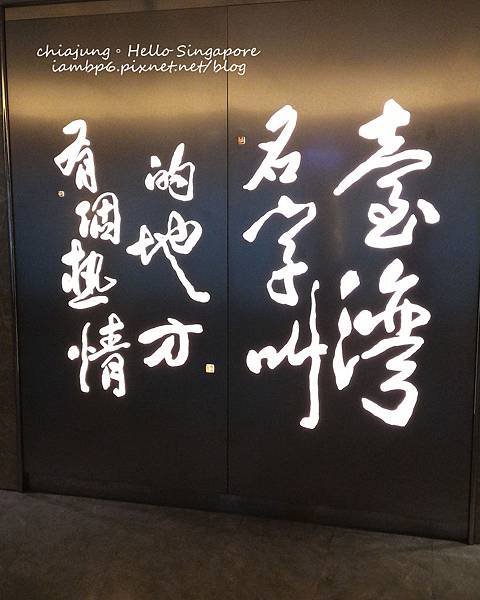 chiajung。Hello Singapore
iambp6.pixnet.net/blog
有個熱情
的地方
名字叫
臺灣